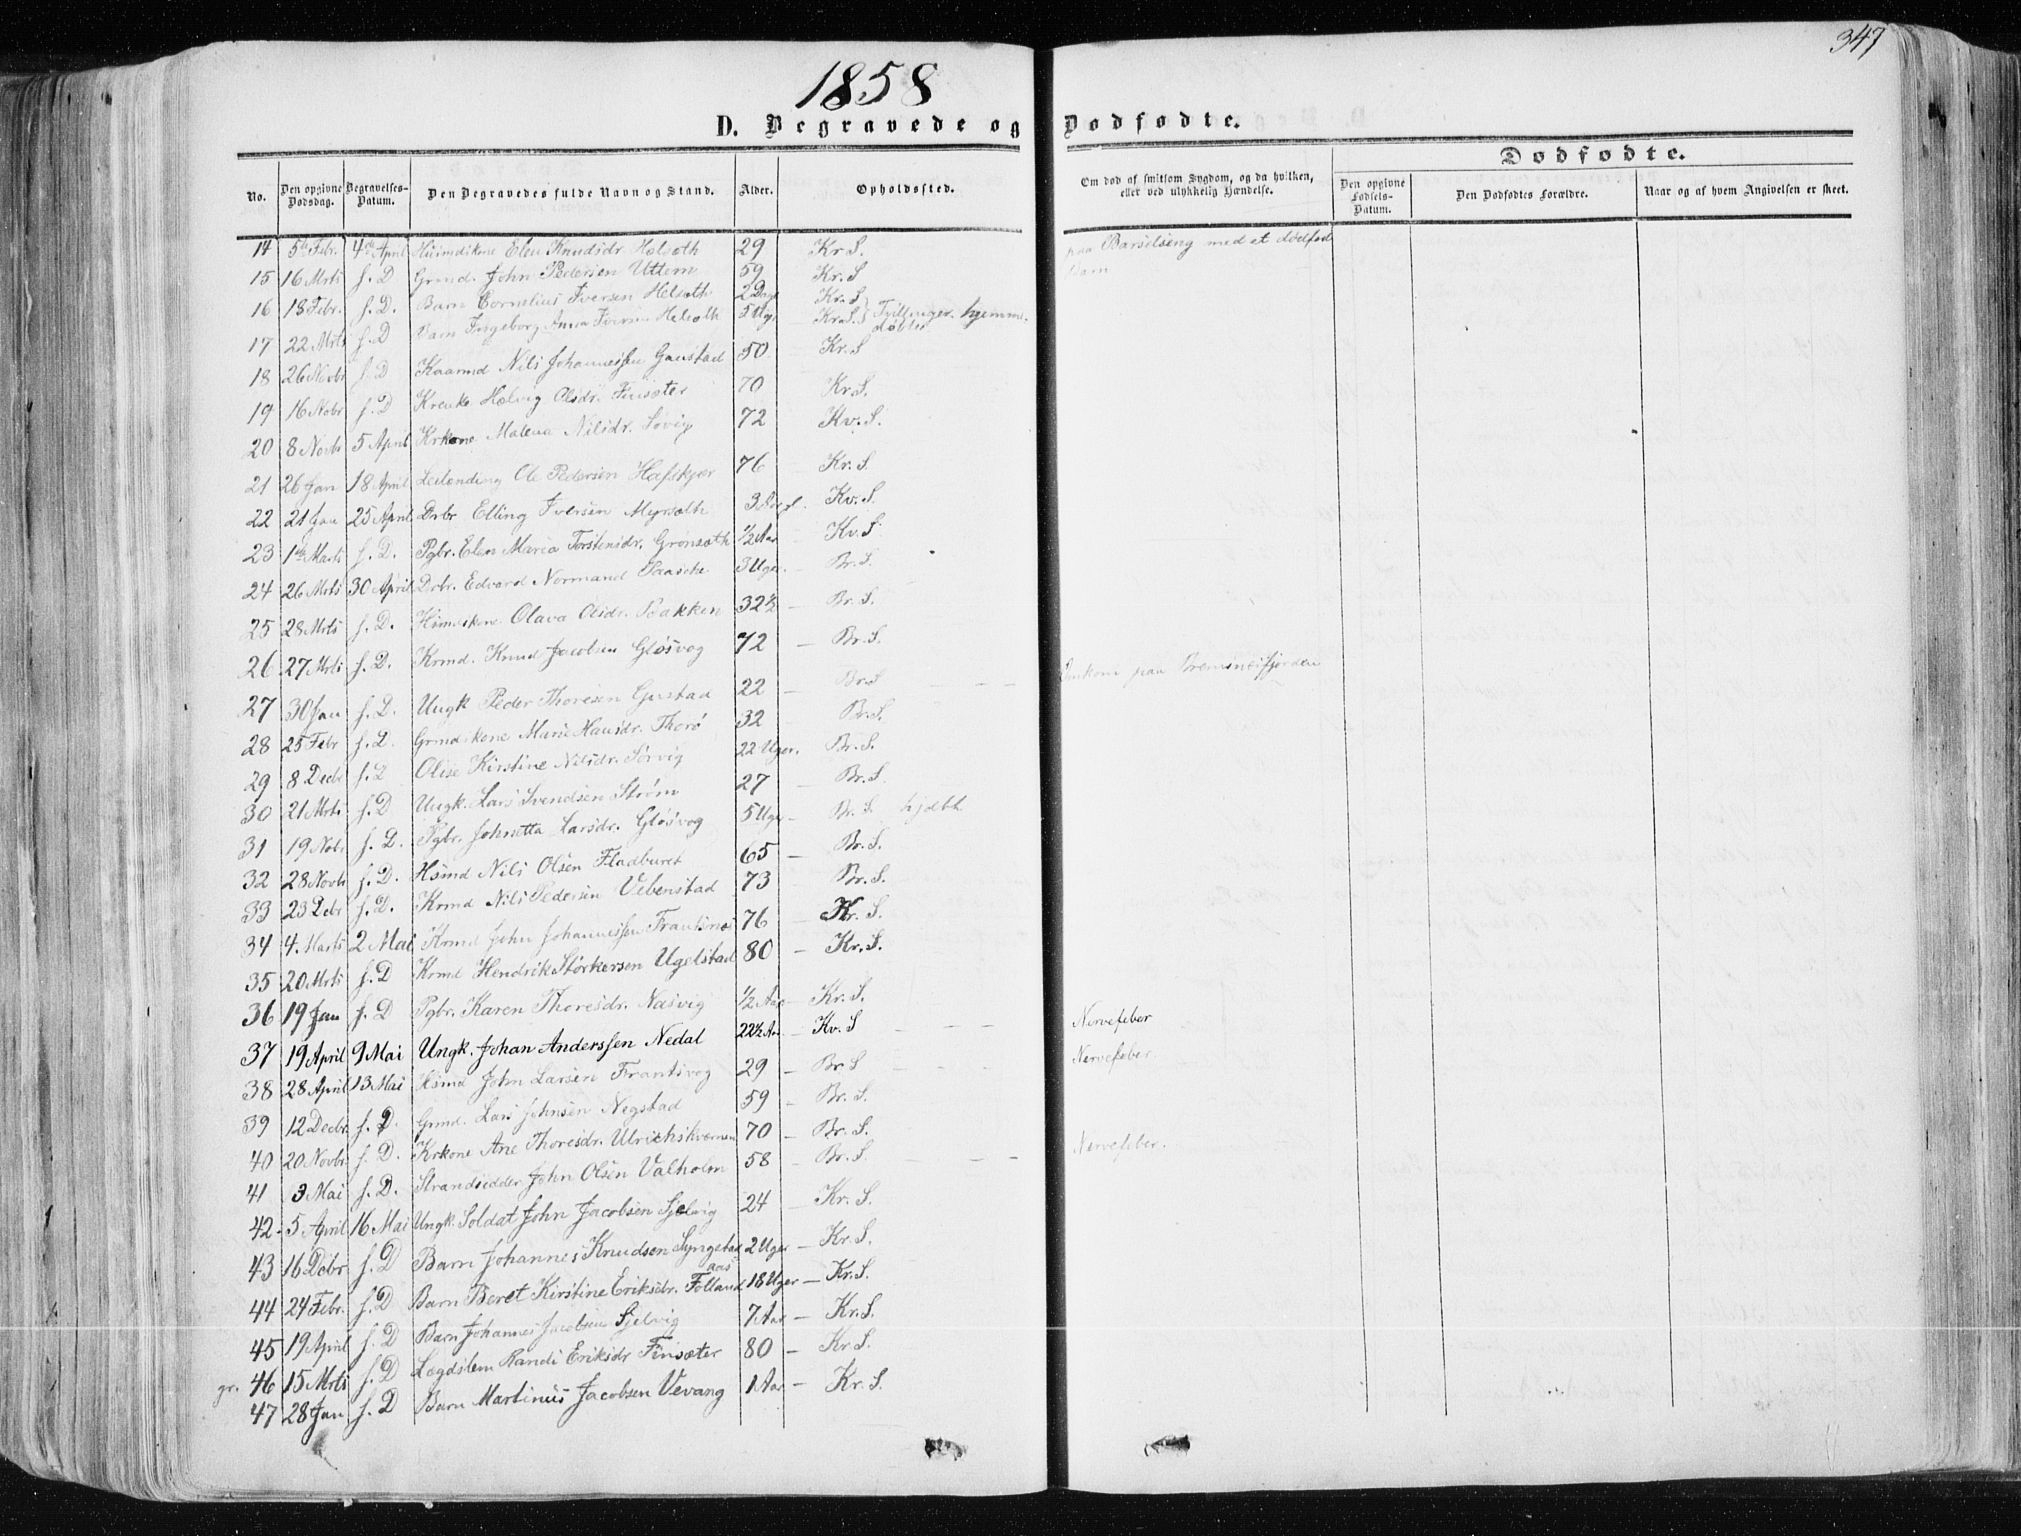 347
1858
D. Begravede og Dødfødte.
Dødfødte.
No. Den opgivne Dødsdag. Begravelses-Datum. Den Begravedes fulde Navn og Stand. Alder. Opholdssted. Om død af smitsom Sygdom, og da hvilken, eller ved ulykkelig Hændelse. Den opgivne Fødsels-Datum. Den Dødfødtes Forældre. Naar og af hvem Angivelsen er skeet.
14 5te Febr. 4de April Huusmdskone Elen Knudsdr. Holsæth 29 Kr. S. paa Barselseng med et dødfødt Barn
15 16 Mrts f. D Grmd. John Pedersen Uttem 59 Kr. S
16 18 Febr. f. D. Barn Cornelius Iversen Helsæth 2 Dage Kr. S
17 22 Mrts f. D Barn Ingeborg Anna Iversdr Helsæth 5 Ug. Kr. S. Tvillinger. hjemmedøbte
18 26 Novbr f. D Kaarmd Nils Johannessen Gaustad 50 Kr. S
19 16 Nobr f. D Krenke Helvig Olsdr. Finsæter 70 Kr. S.
20 8 Novbr 5 April Krkone Malena Nilsdr. Sørvig 72 Kv. S.
21 26 Jan 18 April Leilending Ole Pedersen Hafskjær 76 Kr. S.
22 21 Jan 25 April Drbr Elling Iversen Myrsæth 3 Kv. S.
23 1ste Marts f. D. Pgbr. Elen Maria Torstensdr. Grønsæth 1/2 Aar Kv. S
24 26 Mrts 30 April Drbr. Edvard Normand Paasche 3 Uger. Br. S.
25 28 Mrts f. D. Hsmdskone Olava Olsdr. Bakken 32 1/2 Br. S.
26 27 Mrts f. D. Krmd. Knud Jacobsen Gløsvog 72 Br. S.
27 30 Jan f. D. Ungk Peder Thoresen Gustad 22 Br. S Omkom paa Bremsnesfjorden
28 25 Febr f. D. Grmdskone Marie Hansdr. Thorø 32 Br. S.
29 8 Decbr f. D Olise Kirstine Nilsdr. Sørvig 22 Uger. Br. S.
30 21 Mrts f. D Ungk. Lars Svendsen Strøm 27 Br. S.
31 19 Nobr. f. D. Pgbr. Johnetta Larsdr. Gløsvog 5 Uger Br. S. hjdbt
32 28 Novbr f. D. Hsmd Nils Olsen Fladburet 65 Br. S.
33 23 Debr f. D. Krmd Nils Pedersen Vebenstad 73 Br. S.
34 4. Marts 2 Mai Krmd John Johannessen Frantsnes 76 Kr. S.
35 20 Mrts f. D Krmd Hendrik Størkersen Ugelstad 80 Kr. S.
36 19 Jan f. D Pgbr. Karen Thoresdr. Næsvig 1/2 Aar Kr. S.
37 19 April 9 Mai Ungk. Johan Anderssen Nedal 22 1/2 Aar Kv. S Nervefeber
38 28 April 13 Mai Hsmd John Larsen Frantsvog 29 Br S Nervefeber.
39 12 Decbr f. D. Grmd. Lars Johnsen Negstad 59 Br. S.
40 20 Novbr f. D. Krkone Ane Thoresdr. Ulrichskværnen 70 Br. S.
41 3 Mai f. D. Strandsidder John Olsen Valholm 58 Br. S. Nervefeber.
42 5 April 16 Mai Ungk. Soldat John Jacobsen Sjølvig 24 Kr. S.
43 16 Debr f. D Barn Johannes Knudsen Syngstad 2 Uger Kr. S.
44 24 Febr. f. D Barn Beret Kirstine Eriksdr. Follandaas 18 Uger Kr. S.
45 19 April f. D Barn Johannes Jacobsen Sjølvig 7 Aar Kr. S.
gr. 46 15 Mrts f. D Lægdslem Randi Eriksdr Finsæter 80 Kr S.
47 28 Jan f. D Barn Martinus Jacobsen Vevang 1 Aar Kr. S.